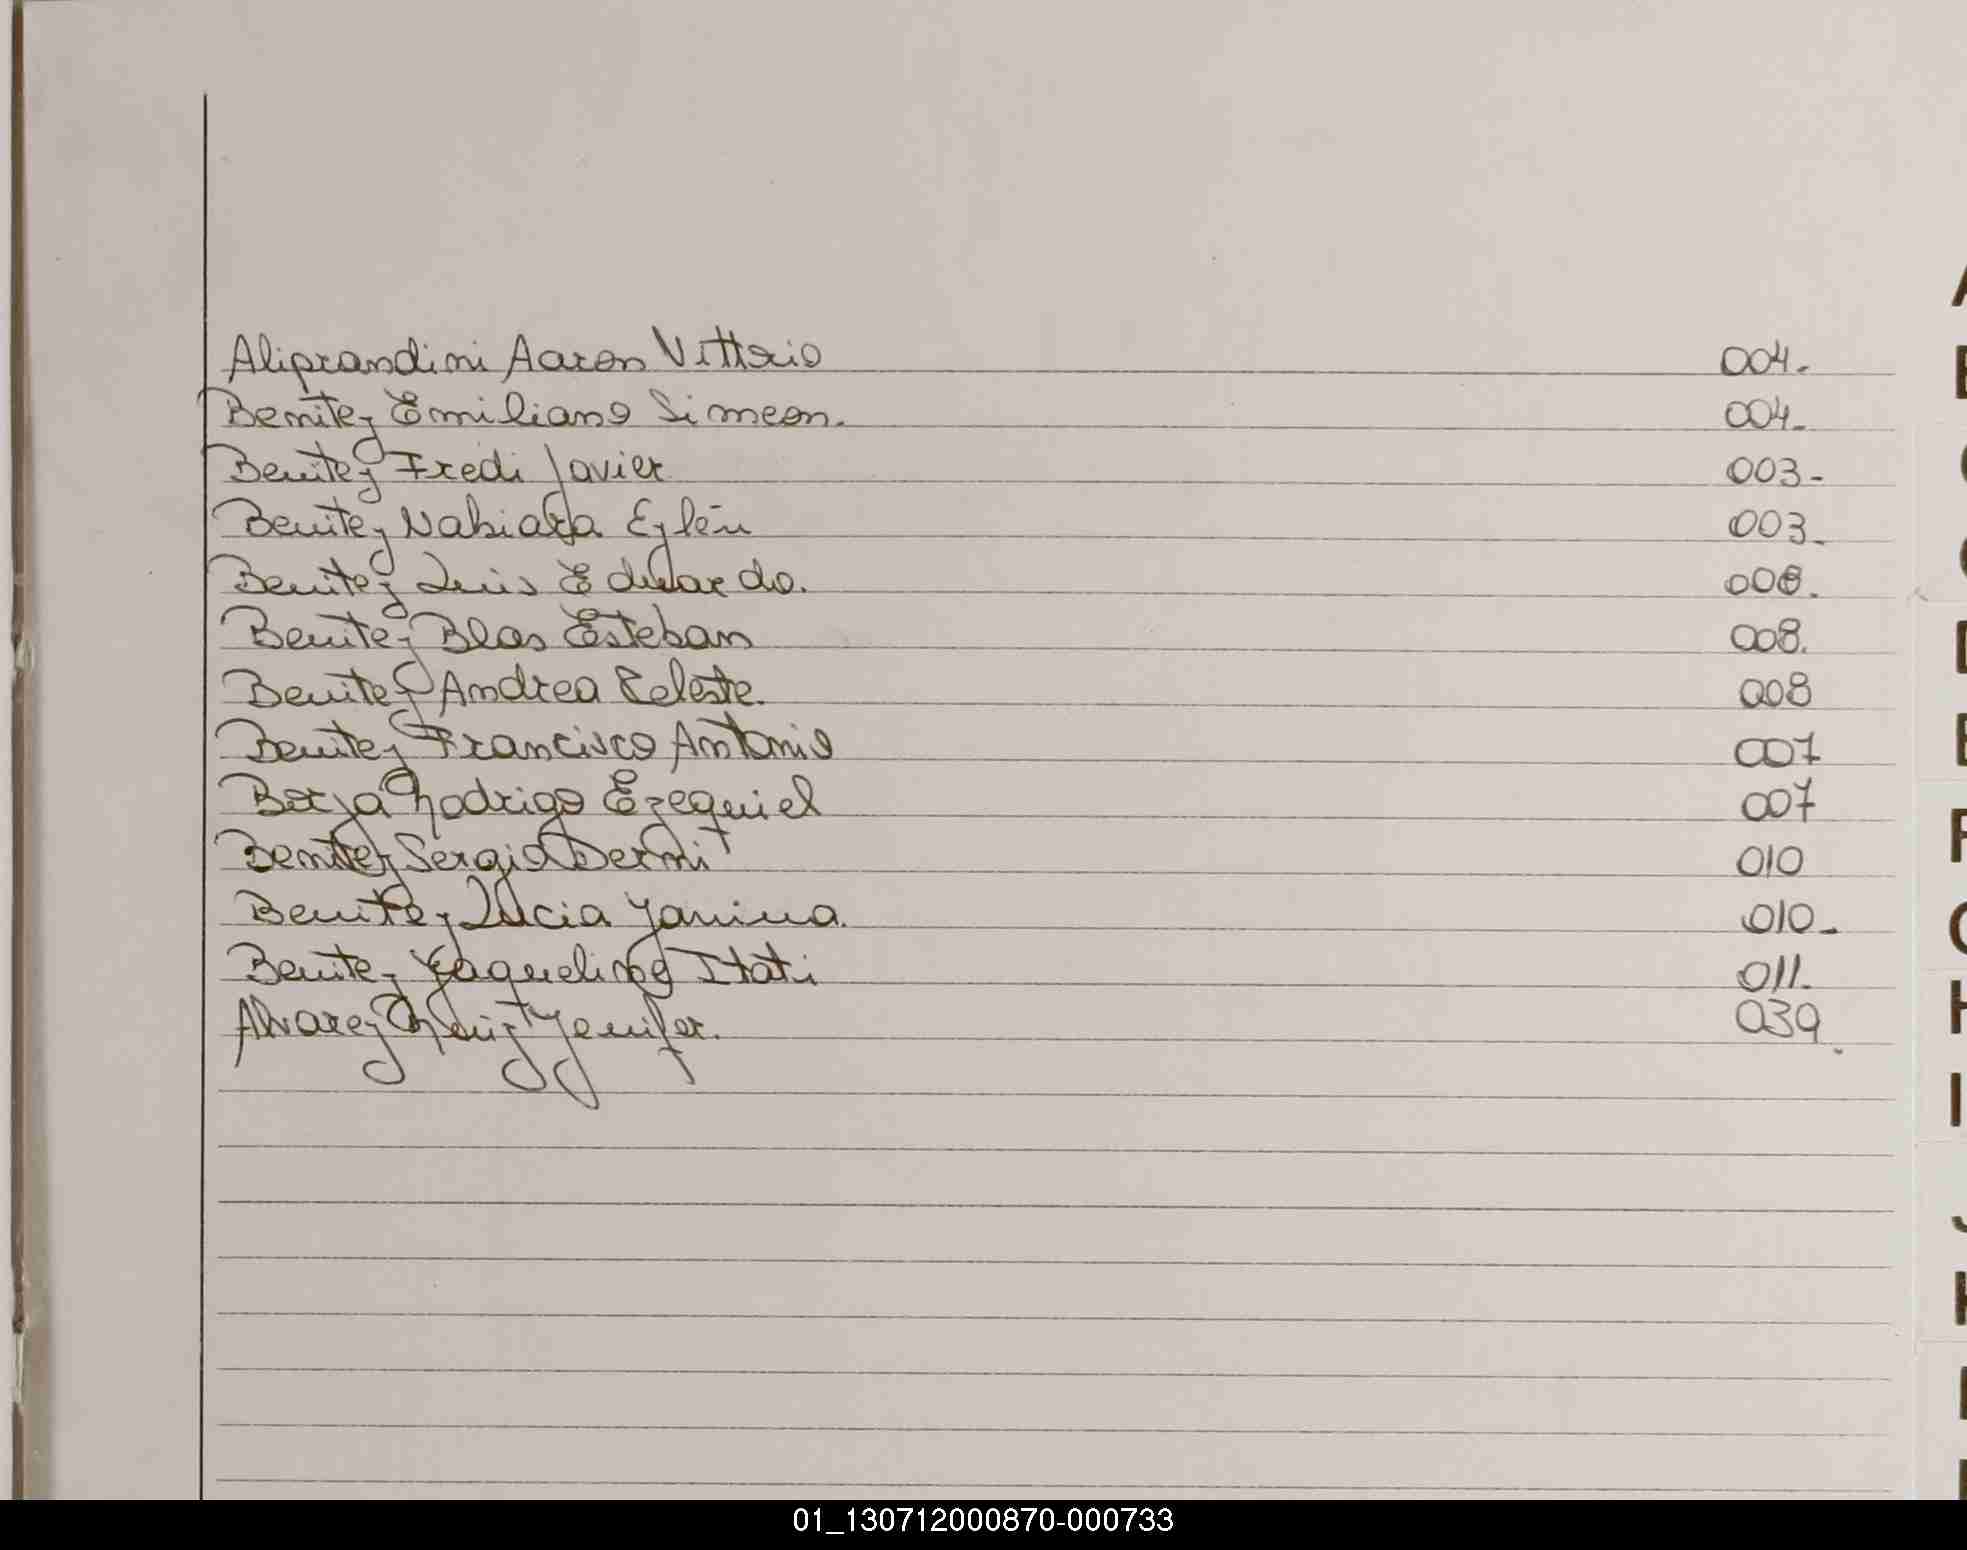 Aliprandini Aaron Vittorio 004.
Benitez Emiliano Simeon. 004.
Benitez Fredi Javier 003-
Benitez Eylén 003.
Benitez Luis Eduardo. 008.
Benitez Blas Esteban 008.
Benitez Andrea Celeste. 008
Benitez Francisco Antonio 007
Borja Rodrigo Ezequiel 007
Benitez Sergio 010
Benitez Lucia Yanina. 010-
Benitez Yaqueline Itati 011.
Alvarez Yenifer. 039.
A
E
F
H
I
J
01_130712000870-000733